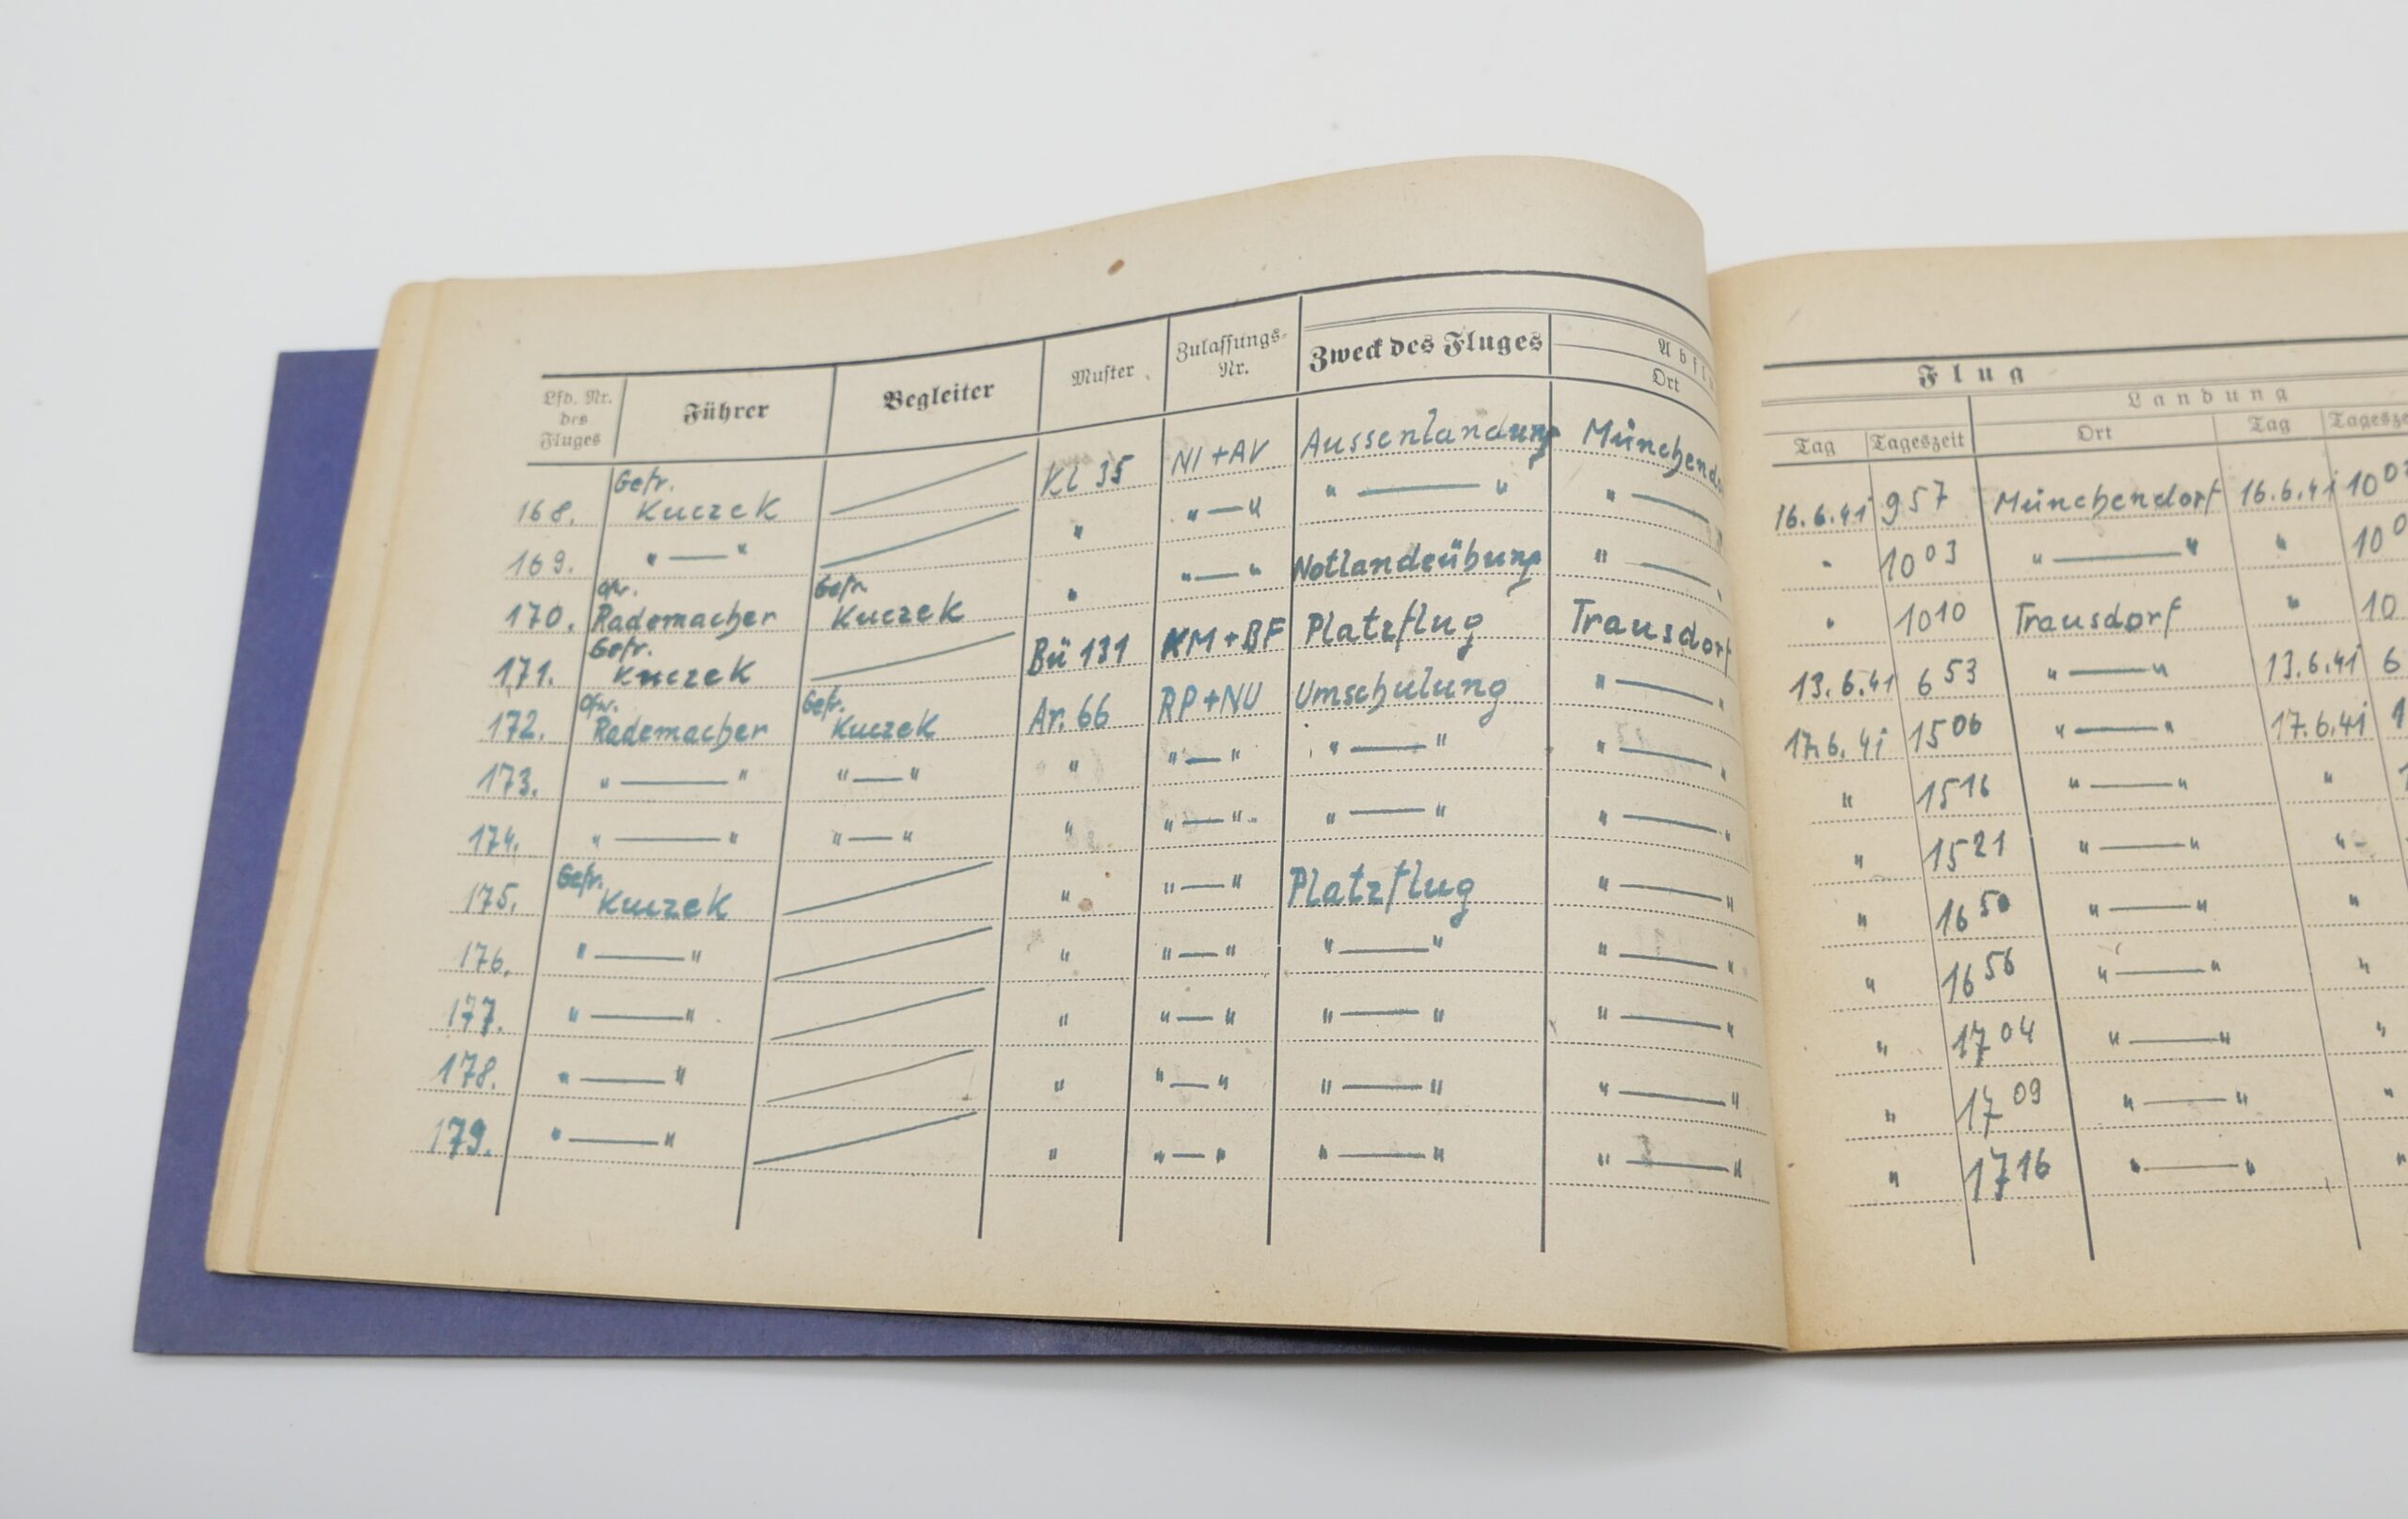 Lfd. Nr. des Fluges Führer Begleiter Muster Zulassungs-Nr. Zweck des Fluges Abflu Ort
Flug
Landung
Tag Tageszeit Ort Tag Tagesze
168. Gefr. Kuczek Kl 35 NI+AV Aussenlandung Münchendo 16.6.41 9 57 Münchendorf 16.6.41 10 0
169. " — " " " — " " — " " — " 10 03 " — " " 10 0
170. Ofw. Rademacher Gefr. Kuczek " " — " Notlandeübung " — " " 10 10 Trausdorf " 10
171. Gefr. Kuczek Bü 131 KM+BF Platzflug Trausdorf 13.6.41 6 53 " — " 13.6.41 6
172. Ofw. Rademacher Gefr. Kuczek Ar. 66 RP+NU Umschulung " — " 17.6.41 15 06 " — " 17.6.41 1
173. " — " " — " " " — " " — " " — " " 15 16 " — " " 1
174. " — " " — " " " — " " — " " — " " 15 21 " — " "
175. Gefr. Kuczek " " — " Platzflug " — " " 16 50 " — " "
176. " — " " " — " " — " " — " " 16 56 " — " "
177. " — " " " — " " — " " — " " 17 04 " — " "
178. " — " " " — " " — " " — " " 17 09 " — " "
179. " — " " " — " " — " " — " " 17 16 " — " "